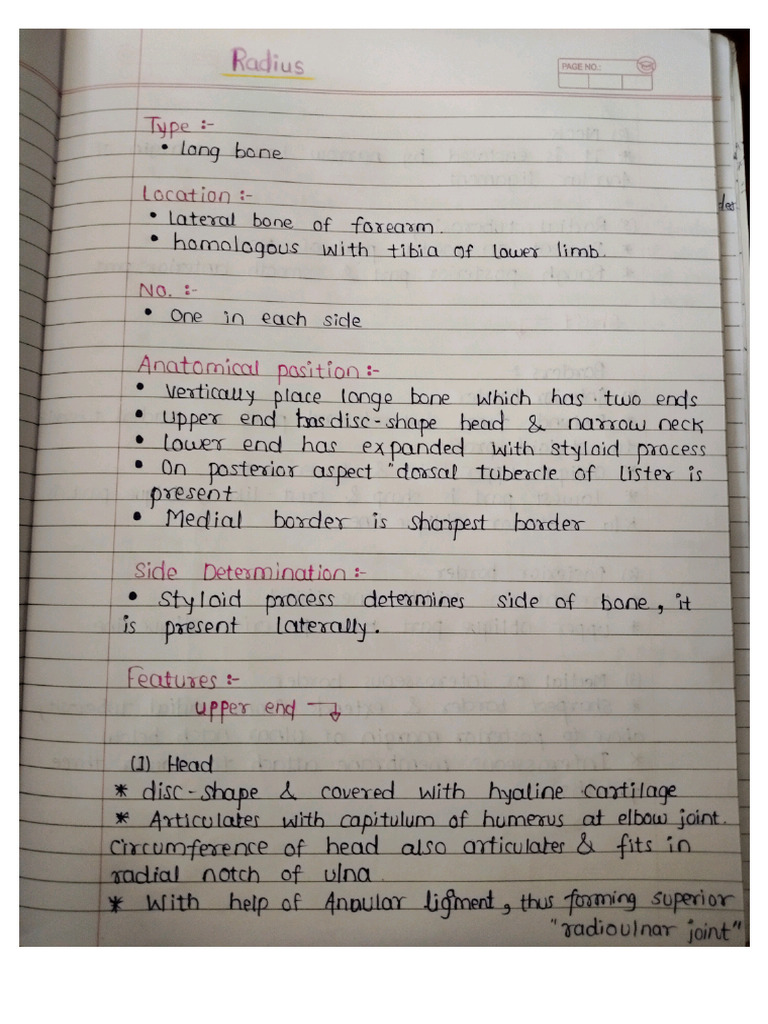 Radius
PAGE NO.:
Type :-
• long bone
Location :-
• lateral bone of forearm.
• homologous with tibia of lower limb.
No. :-
• One in each side
Anatomical position :-
• Vertically place longe bone which has two ends
• upper end has disc-shape head & narrow neck
• lower end has expanded with styloid process
• On posterior aspect "dorsal tubercle of lister is
present
• Medial border is sharpest border
Side Determination :-
• Styloid process determines side of bone, it
is present laterally.
Features :-
upper end
(1) Head
* disc-shape & covered with hyaline cartilage
* Articulates with capitulum of humerus at elbow joint.
Circumference of head also articulates & fits in
radial notch of ulna
* With help of Anular ligment, thus forming superior
"radioulnar joint"